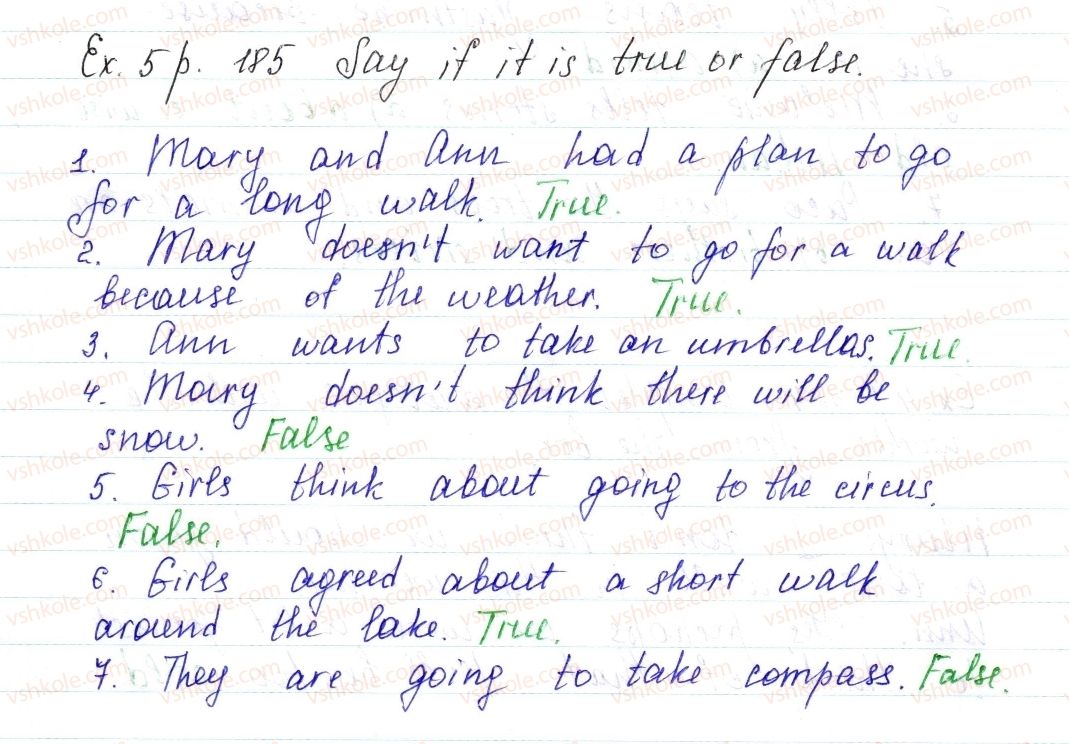 Ex. 5 p. 185 Say if it is true or false.
1. Mary and Ann had a plan to go
for a long walk. True.
2. Mary doesn't want to go for a walk
because of the weather. True.
3. Ann wants to take an umbrellas. True.
4. Mary doesn't think there will be
snow. False
5. Girls think about going to the circus.
False.
6. Girls agreed about a short walk
around the lake. True.
7. They are going to take compass. False.